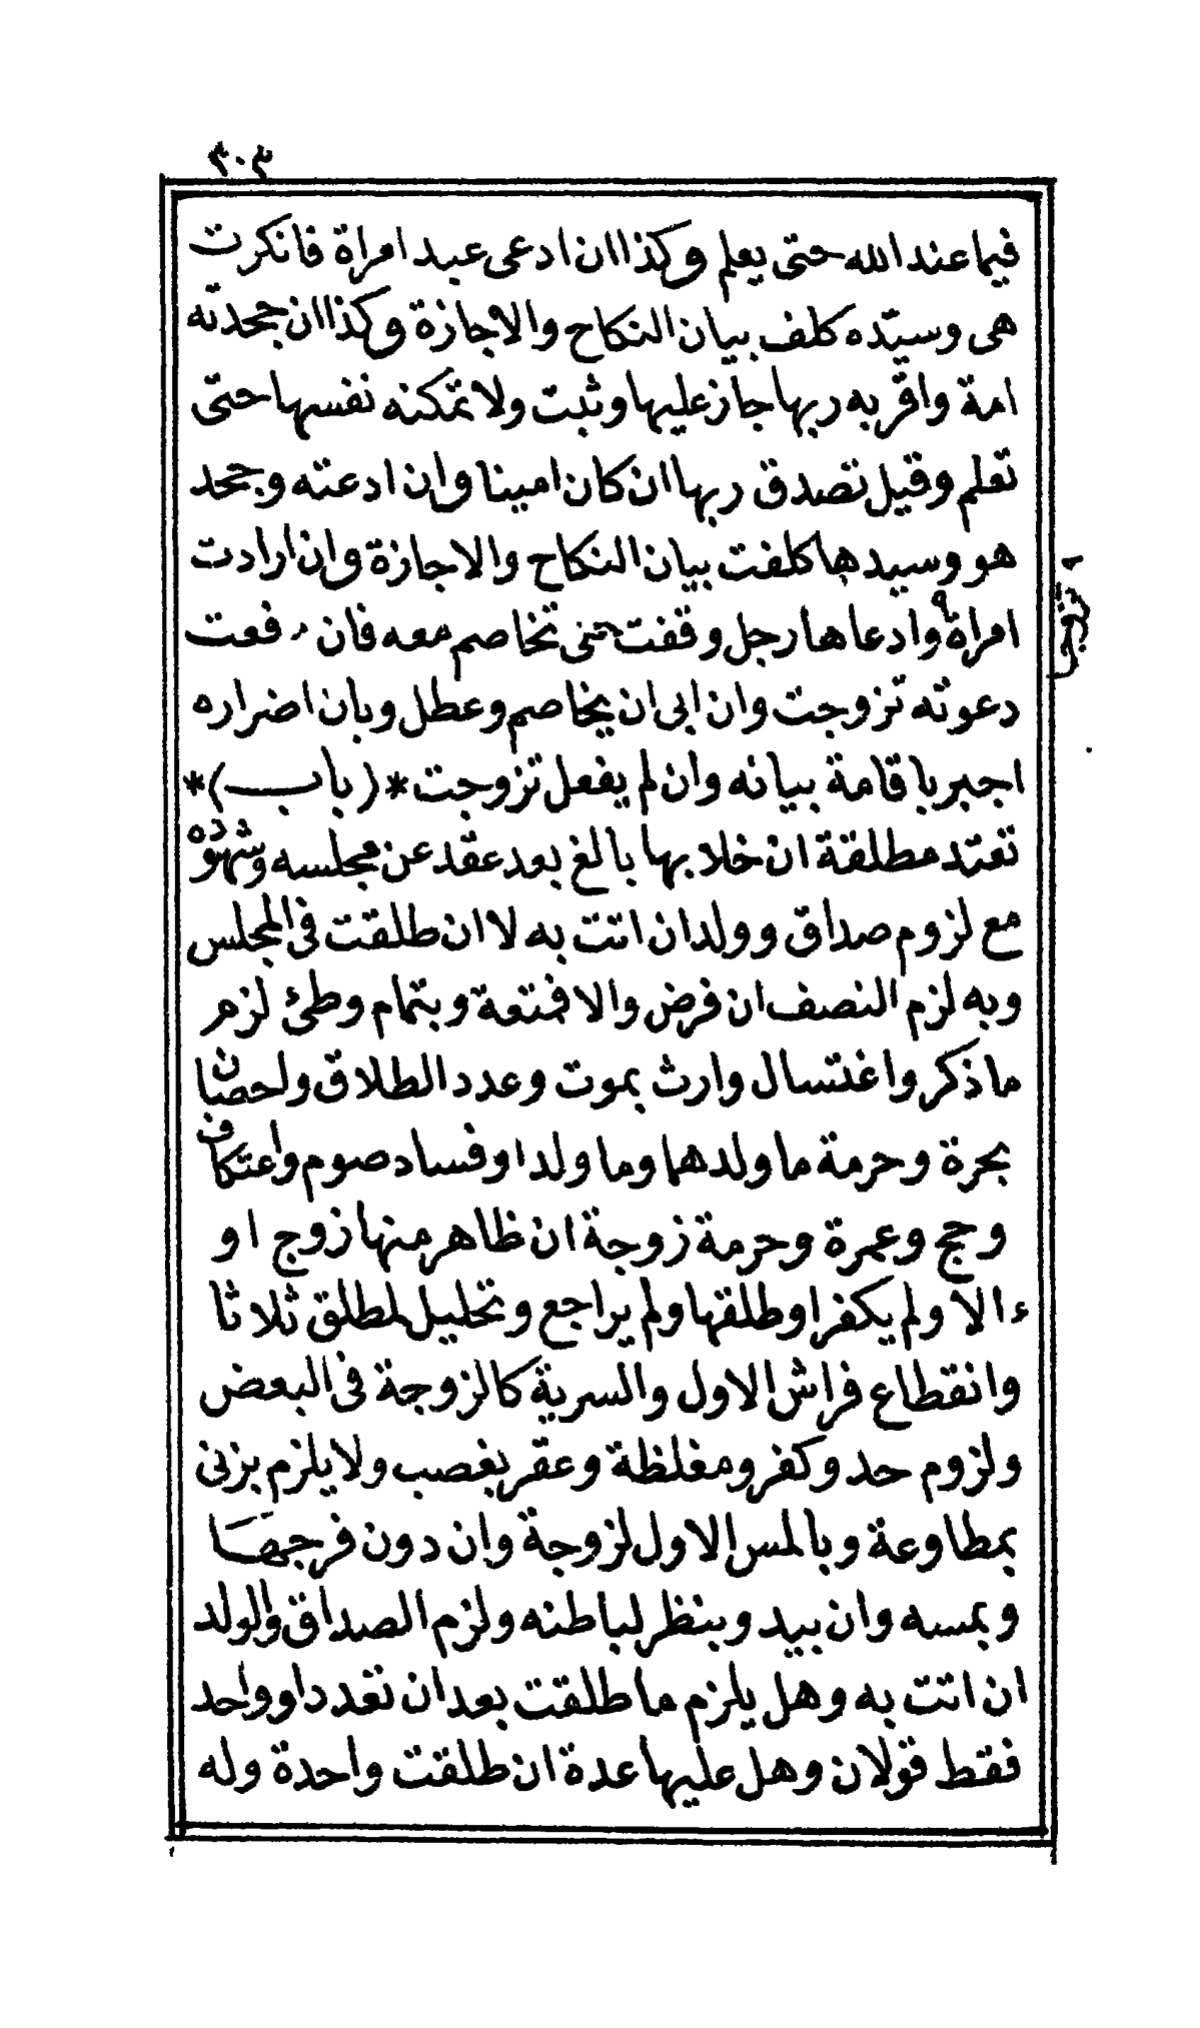 ٣٠٣
فيما عند الله حتى يعلم وكذا ان ادعى عبد امراة فانكرت
هى وسيّده كلف بيان النكاح والاجازة وكذا ان جحدته
امة واقر به ربها جاز عليها وثبت ولا تمكنه نفسها حتى
تعلم وقيل تصدق ربها ان كان امينا وان ادعته وجحد
هو وسيدها كلفت بيان النكاح والاجازة وان ارادت
امراة وادعاها رجل وقفت حتى تخاصم معه فان رفعت
تزوجا
دعوته تزوجت وان ابى ان يخاصم وعطل وبان اضراره
اجبر باقامة بيانه وان لم يفعل تزوجت *(باب)*
تعتد مطلقة ان خلا بها بالغ بعد عقد عن مجلسه وشهوده
مع لزوم صداق وولد ان اتت به لا ان طلقت فى المجلس
وبه لزم النصف ان فرض والا فمتعة وبتمام وطئ لزم
ما ذكر واغتسال وارث بموت وعدد الطلاق واحصان
بحرة وحرمة ما ولدهما وما ولدا وفساد صوم واعتكاف
وحج وعمرة وحرمة زوجة ان ظاهر منها زوج او
ءالا ولم يكفر او طلقها ولم يراجع وتحليل لمطلق ثلاثا
وانقطاع فراش الاول والسرية كالزوجة فى البعض
ولزوم حد وكفر ومغلظة وعقر بغصب ولا يلزم بزنى
بمطاوعة وبالمس الاول لزوجة وان دون فرجها
وبمسه وان بيد وبنظر لباطنه ولزم الصداق والولد
ان اتت به وهل يلزم ما طلقت بعد ان تعدد او واحد
فقط قولان وهل عليها عدة ان طلقت واحدة وله